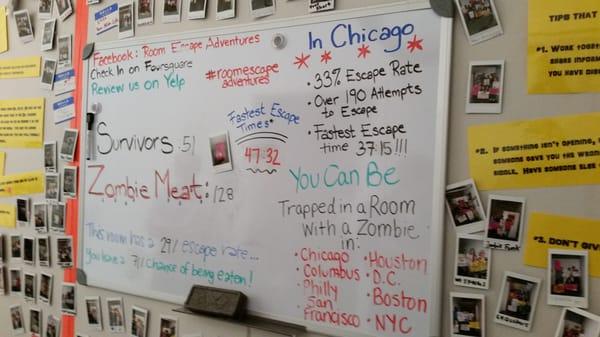 Facebook: Room Escape Adventures
Check In on Foursquare
Review us on Yelp
#roomescape
adventures
Survivors: 51
Zombie Meat: 128
Fastest Escape
Times*
47:32
This room has a 29% escape rate...
you have a 71% chance of being eaten!
In Chicago
• 33% Escape Rate
• Over 190 Attempts
to Escape
• Fastest Escape
time 37:15!!!
You Can Be
Trapped in a Room
With a Zombie
in:
• Chicago
• Columbus
• Philly
• San
Francisco
• Houston
• D.C.
• Boston
• NYC
TIPS THAT
#1. Work togeth
share inform
you have dis
#2. If something isn't opening,
someone gave you the wron
riddle. Have someone else
#3. Don't give